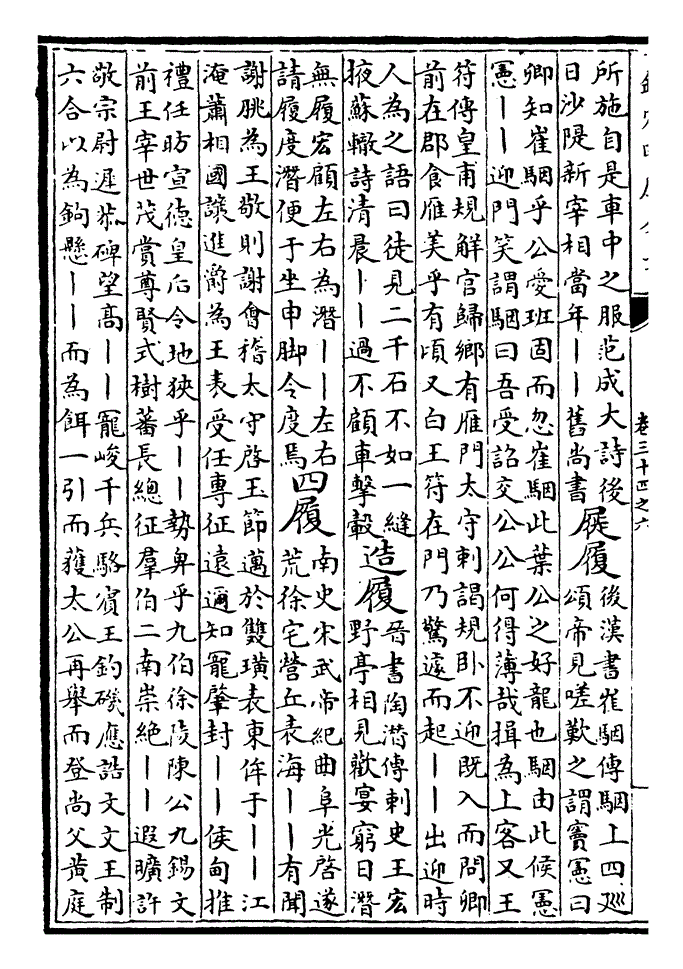 卷三十四之六
所施自是車中之服范成大詩後
日沙隄新宰相當年丨丨舊尚書
屣履
後漢書崔駰傳駰上四廵
頌帝見嗟歎之謂竇憲曰
卿知崔駰乎公受班固而忽崔駰此葉公之好龍也駰由此候憲
憲丨丨迎門笑謂駰曰吾受詔交公公何得薄哉揖為上客又王
符傳皇甫規解官歸鄉有雁門太守刺謁規卧不迎既入而問卿
前在郡食雁美乎有頃又白王符在門乃驚遽而起丨丨出迎時
人為之語曰徒見二千石不如一縫
掖蘇轍詩清晨丨丨過不顧車擊轂
造履
晉書陶潛傳刺史王宏
野亭相見歡宴窮日潛
無履宏顧左右為潛丨丨左右
請履度潛便于坐申脚令度焉
四履
南史宋武帝紀曲阜光啓遂
荒徐宅營丘表海丨丨有聞
謝朓為王敬則謝會稽太守啓玉節邁於雙璜表東侔于丨丨江
淹蕭相國讓進爵為王表受任專征遠邇知寵肇封丨丨侯甸推
禮任昉宣德皇后令地狹乎丨丨勢卑乎九伯徐陵陳公九錫文
前王宰世茂賞尊賢式樹蕃長總征羣伯二南崇絶丨丨遐曠許
敬宗尉遲恭碑望高丨丨寵峻千兵駱賓王釣磯應詰文文王制
六合以為鉤懸丨丨而為餌一引而獲太公再舉而登尚父黄庭